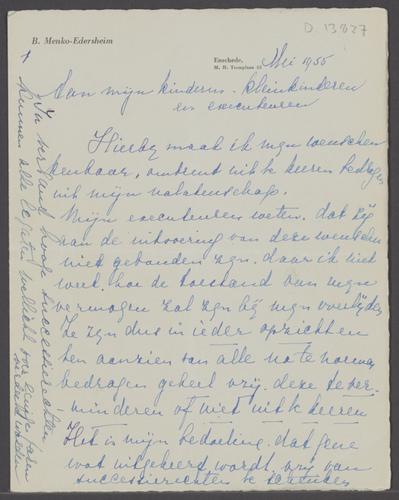 D. 13827
B. Menko-Edersheim
Enschede, Mei 1955
M. H. Tromplaan
Aan mijn kinderen. kleinkinderen
en executeuren
Hierbij maak ik mijn wenschen
kenbaar, omtrent uit te keeren bedragen
uit mijn nalatenschap.
Mijn executeuren weten, dat zij
aan de uitvoering van deze wenschen
niet gebonden zijn, daar ik niet
weet hoe de toestand van mijn
vermogen zal zijn bij mijn overlijden
Ze zijn dus in ieder opzichten
ten aanzien van alle na te noemen
bedragen geheel vrij, deze te ver-
minderen of niet uit te keeren
Het is mijn bedoeling, dat gene
wat uitgekeerd wordt, vrij van
successierechten te
In verband hooge successierechten
kunnen alle legaten wellicht over eenige jaren